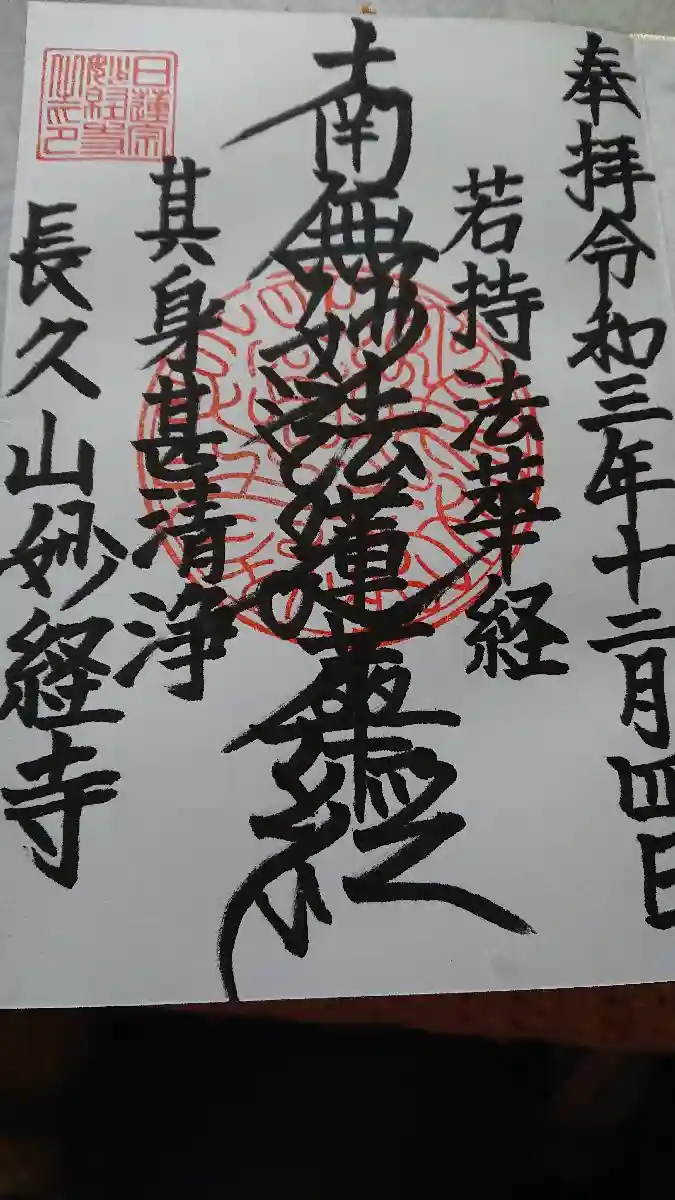 奉拝令和三年十二月四日
若持法華経
南無妙法蓮華経
其身甚清浄
日蓮宗
妙経寺
之印
長久山妙経寺